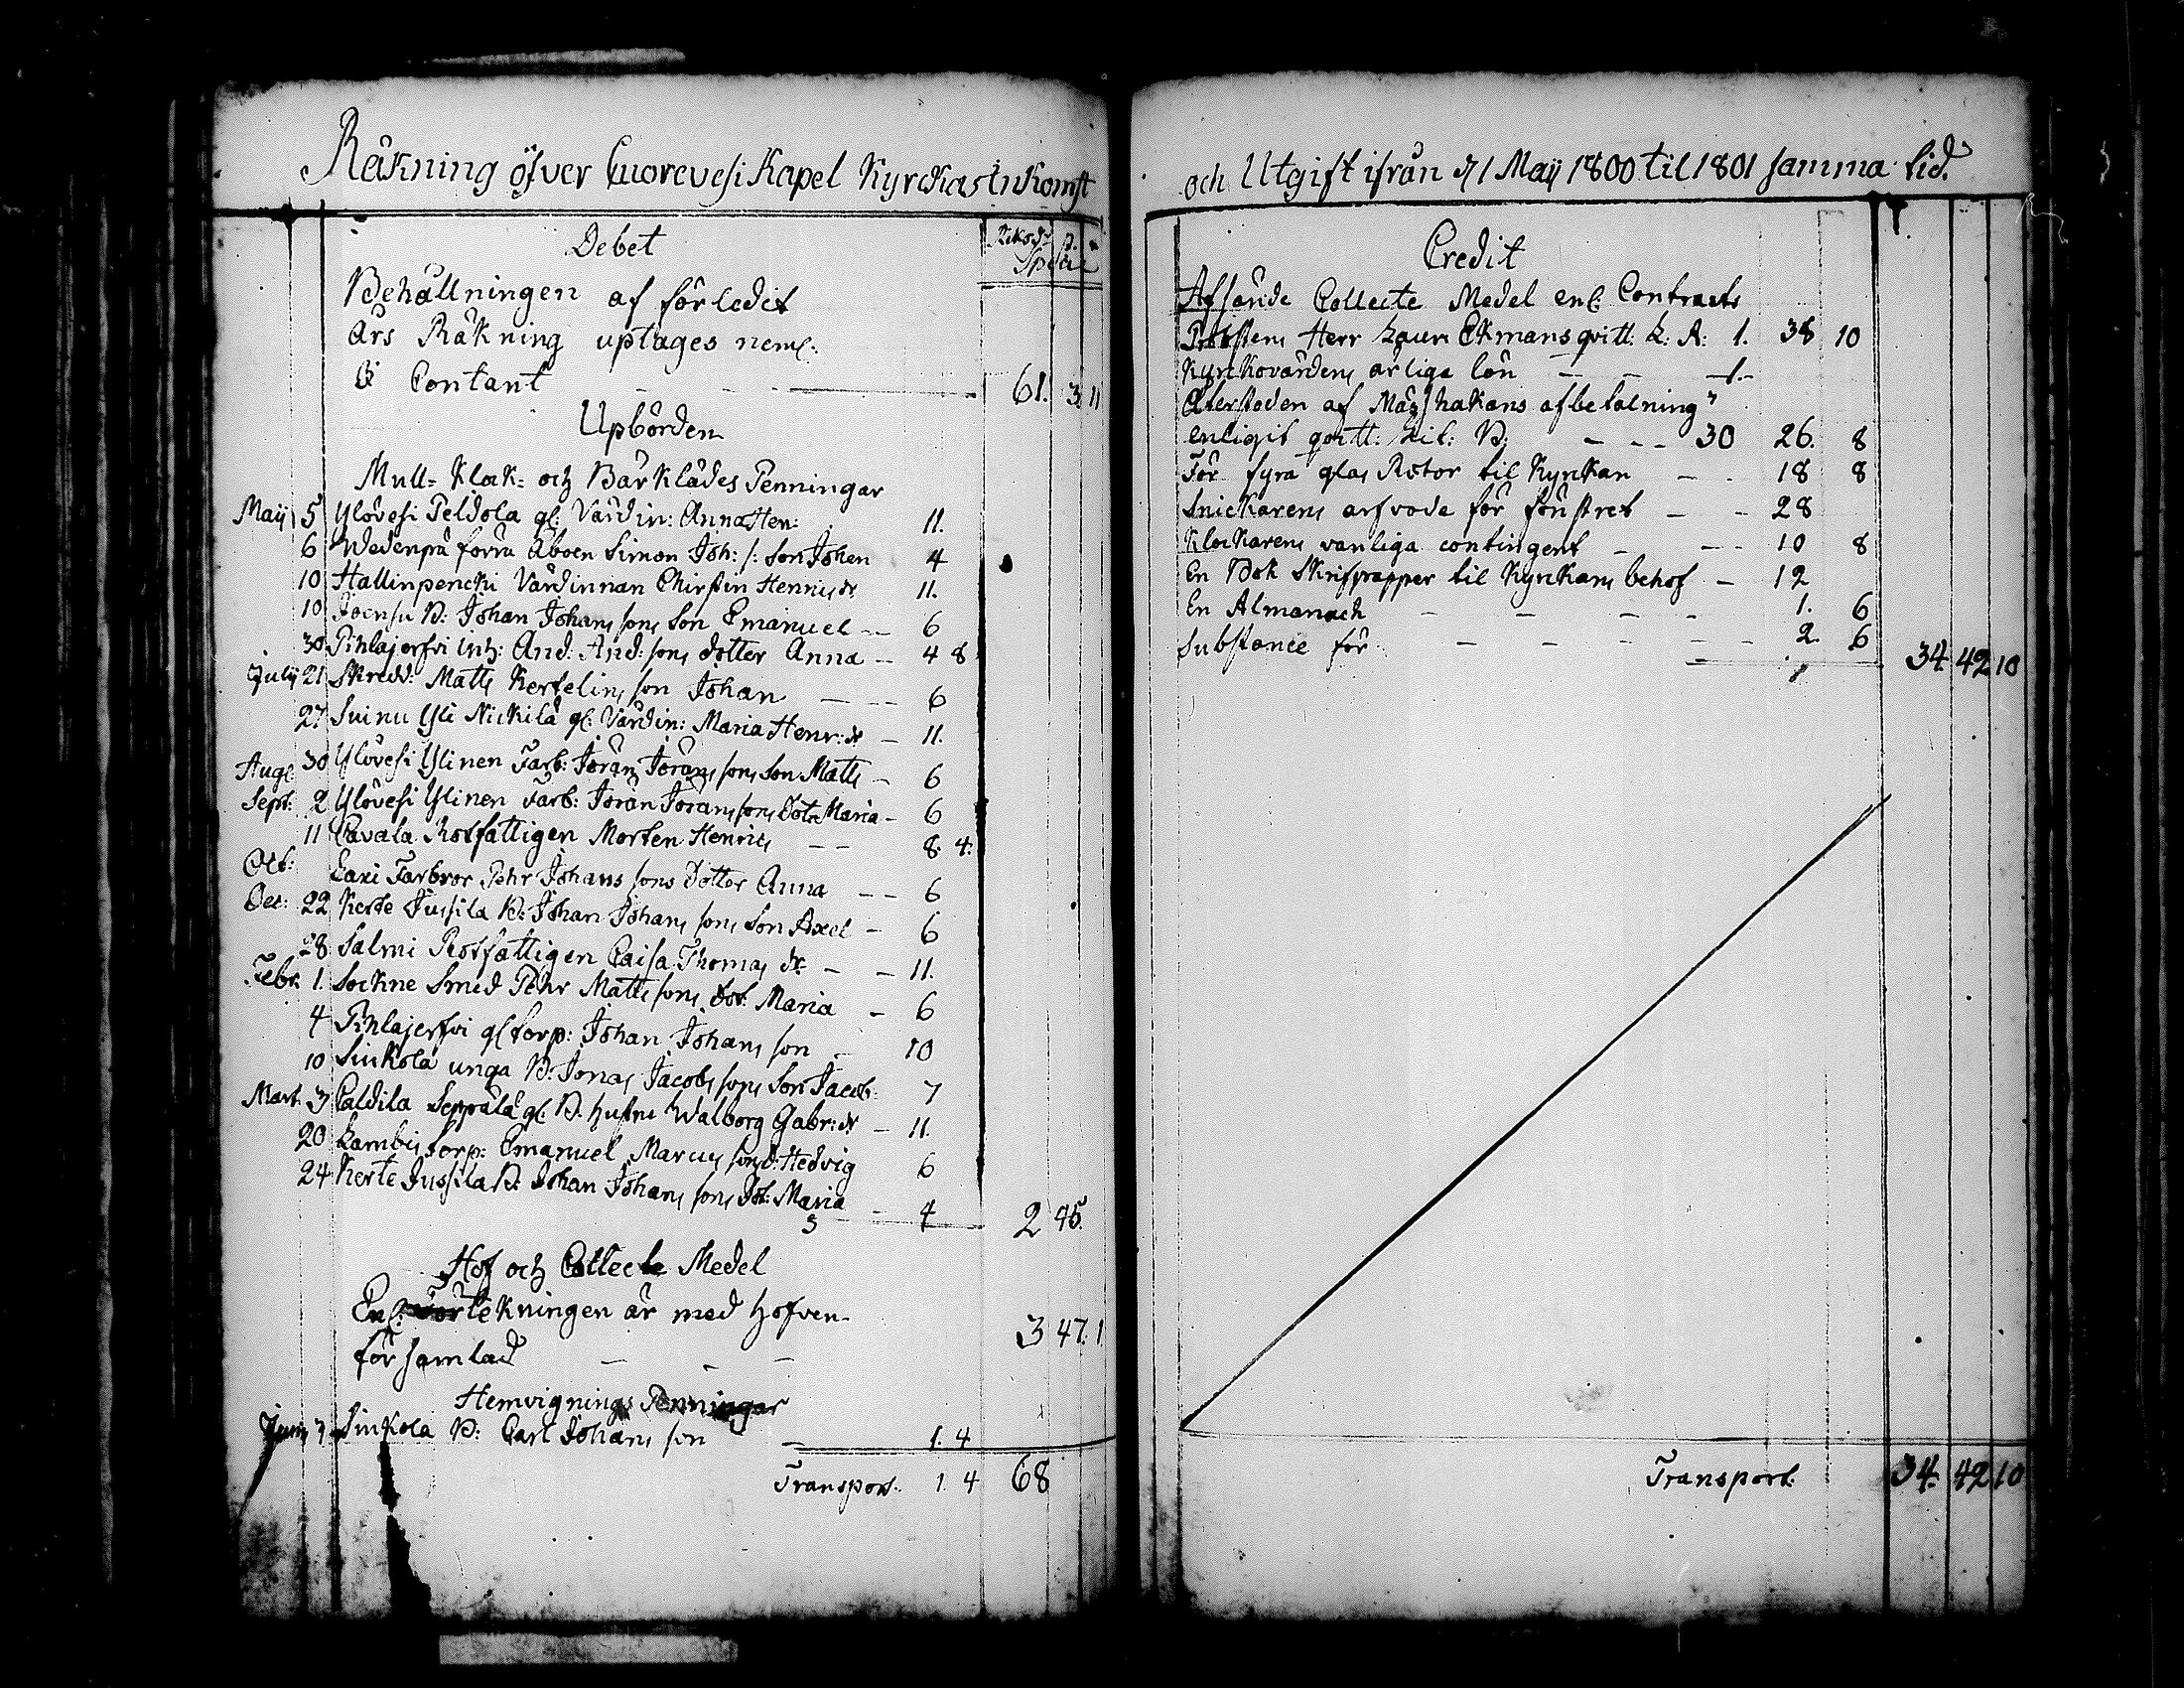 Räkning öfver Cuorevesi Kapel Kyrckas Inkomst
Debet
Riksd. s.
Specie
Behållningen af förledit
års Räkning uptages neml:
Contant 61. 3 11
Upbörden
Mull- Klock- och Bårklädes Penningar
Maij 5 Ylövesi Peldola gl: Värdin: Anna Hen: 11.
6 Wedenpä förra Åboen Simon Joh: /: Son Johan 4
10 Hallinpencki Värdinnan Chirstin Henricsdr 11.
10 Joensu B: Johan Johans sons Son Emanuel 6
30 Pihlajerfvi inh: And: And: sons dotter Anna 4 8
Julij 21 Skredd: Matts Kertelins son Johan 6
27 Suinu Yli Nickilä gl: Värdin: Maria Henr: dr 11.
Aug: 30 Ylövesi Ylinen Farb: Jöran Jörans sons Son Matts 6
Sept: 2 Ylövesi Ylinen Farb: Jöran Jörans sons Dotr Maria 6
11 Pavala Rotfattigen Morten Henrics 8. 4.
Oct: Eari Farbror Pehr Johans sons Dotter Anna 6
Dec: 22 Kerte Jussila B: Johan Johans sons Son Axel 6
28 Salmi Rotfattigen Caisa Thomas dr 11.
Febr. 1. Sockne Smed Pehr Matts sons Dot: Maria 6
4 Pihlajerfvi gl torp: Johan Johans son 10
10 Sinkola unga B: Jonas Jacobs sons Son Jacob 7
Mart. 3 Paldila Seppälä gl: B. hustru Walborg Gabr: dr 11.
20 Lambis torp: Emanuel Marcus sons d: Hedvig 6
24 Kerte Jussila B: Johan Johans sons Dot: Maria 4
2 45.
Hof och Collecte Medel
Enl: Förtekningen är med hofven
församlad 3 47. 1
Hemvignings Penningar
Junij 7 Sinkola B: Carl Johans son 1. 4
Transport. 1. 4 68
och Utgift ifrån d 1 Maij 1800 til 1801 samma tid.
Credit
Afsände Collecte Medel enl: Contracts
Probstens Herr Laur: Ekmans qvitt: L: A: 1. 38 10
Kyrckovärdens årliga lön 1.
Återstoden af Mässhakans afbetalning
enligit qvitt: Lit: B: 30 26. 8
För fyra glas Rutor til Kyrkan 18 8
Snickarens arfvode för fönstret 28
Klockarens vanliga contingent 10 8
En Bok Skrifpapper til Kyrkans behof 12
En Almanach 1. 6
Substance för 2. 6
34 42 10
Transport. 34. 42 10